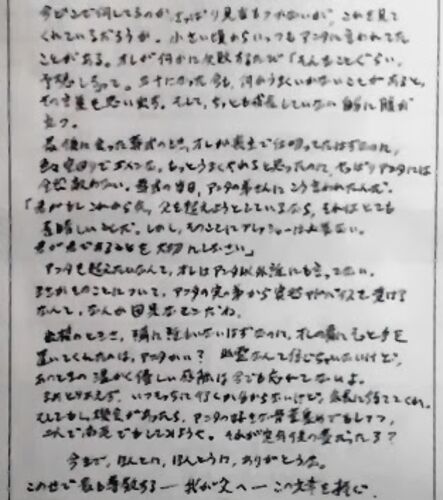 今どこで何してるのか、さっぱり見当もつかないが、これを見て
くれているだろうか。小さい頃からいつもアンタに言われてた
ことがある。オレが何かに失敗するたび「そんなことぐらい、
予想しろ」って。五十になった今も、何かうまくいかないことがあると、
その言葉を思い出す。そして、ちっとも成長していない自分に腹が
立つ。
最後に会った葬式のとき、オレが喪主で仕切ってたはずなのに、
空回りでゴメンな。もっとうまくやれると思ったのに、やっぱりアンタには
全然敵わない。葬式の当日、アンタの弟さんにこう言われたんだ。
「君がもしこれから先、父を超えようとしているなら、それはとても
素晴しいことだ。しかし、そのことにプレッシャーは必要ない。
君が君であることを大切にしなさい」
アンタを超えたいなんて、オレはアンタ以外誰にも言ってない。
そのことについて、アンタの実の弟から突然アドバイスを受ける
なんて、なんか因果なもんだね。
出棺のときさ、隣に誰もいないはずなのに、オレの肩にそっと手を
置いてくれたのは、アンタかい？幽霊なんて信じちゃいないけど、
あのときの温かく優しい感触は今でも忘れてないよ。
まあとりあえず、いつそっちに行くか分からないけど、気長に待っててくれ。
そしてもし機会があったら、アンタの好きな音楽でもして、
二人で南死でもしてみようや。それが定年後の夢だったろ？
今まで、ほんとに、ほんとうに、ありがとうな。
この世で最も尊敬する―我が父へ―この文章を捧ぐ